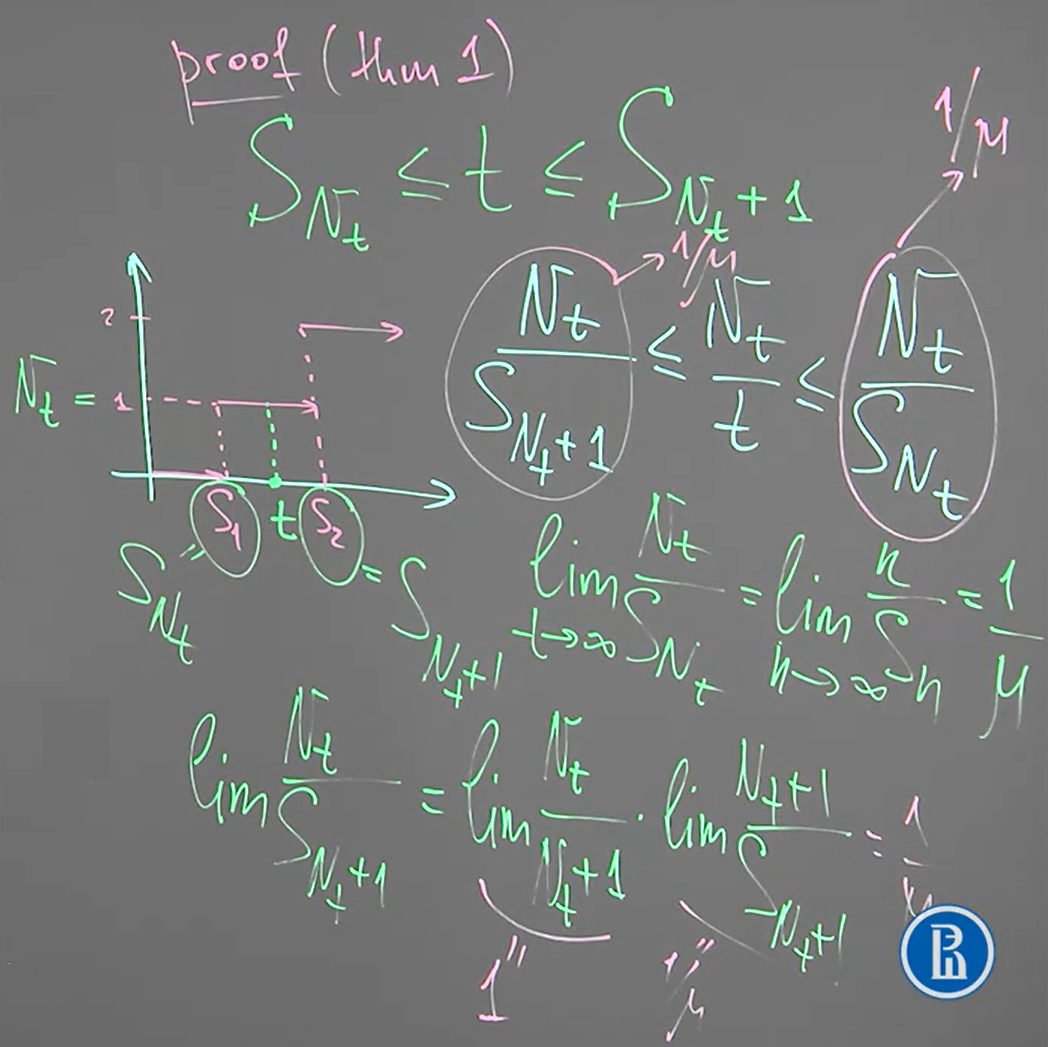 proof (thm 1)
S_{N_t} ≤ t ≤ S_{N_t+1}
1/μ
1/μ
N_t/S_{N_t+1} ≤ N_t/t ≤ N_t/S_{N_t}
2
N_t = 1
S_1 t S_2
S_{N_t} = S_{N_t+1}
lim_{t→∞} N_t/S_{N_t} = lim_{n→∞} n/S_n = 1/μ
lim N_t/S_{N_t+1} = lim N_t/(N_t+1) · lim (N_t+1)/S_{N_t+1} = 1/μ
1 1/μ